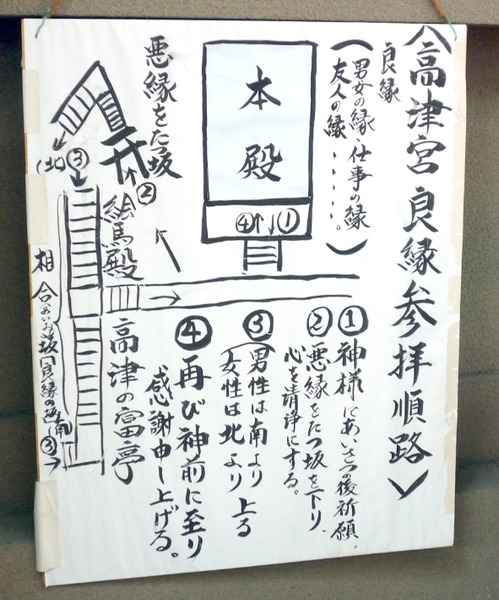 〈高津宮良縁参拝順路〉
良縁
(男女の縁・仕事の縁
友人の縁・・・・・。)
本殿
④↑↓①
悪縁をたつ坂
②
③
(北)
絵馬殿
高津の富亭
相合(あいおい)坂(良縁の坂)
(南)
③
①神様にあいさつの後祈願。
②悪縁をたつ坂を下り、
心を清浄にする。
③(男性は南より
女性は北より上る
④再び神前に至り
感謝申し上げる。